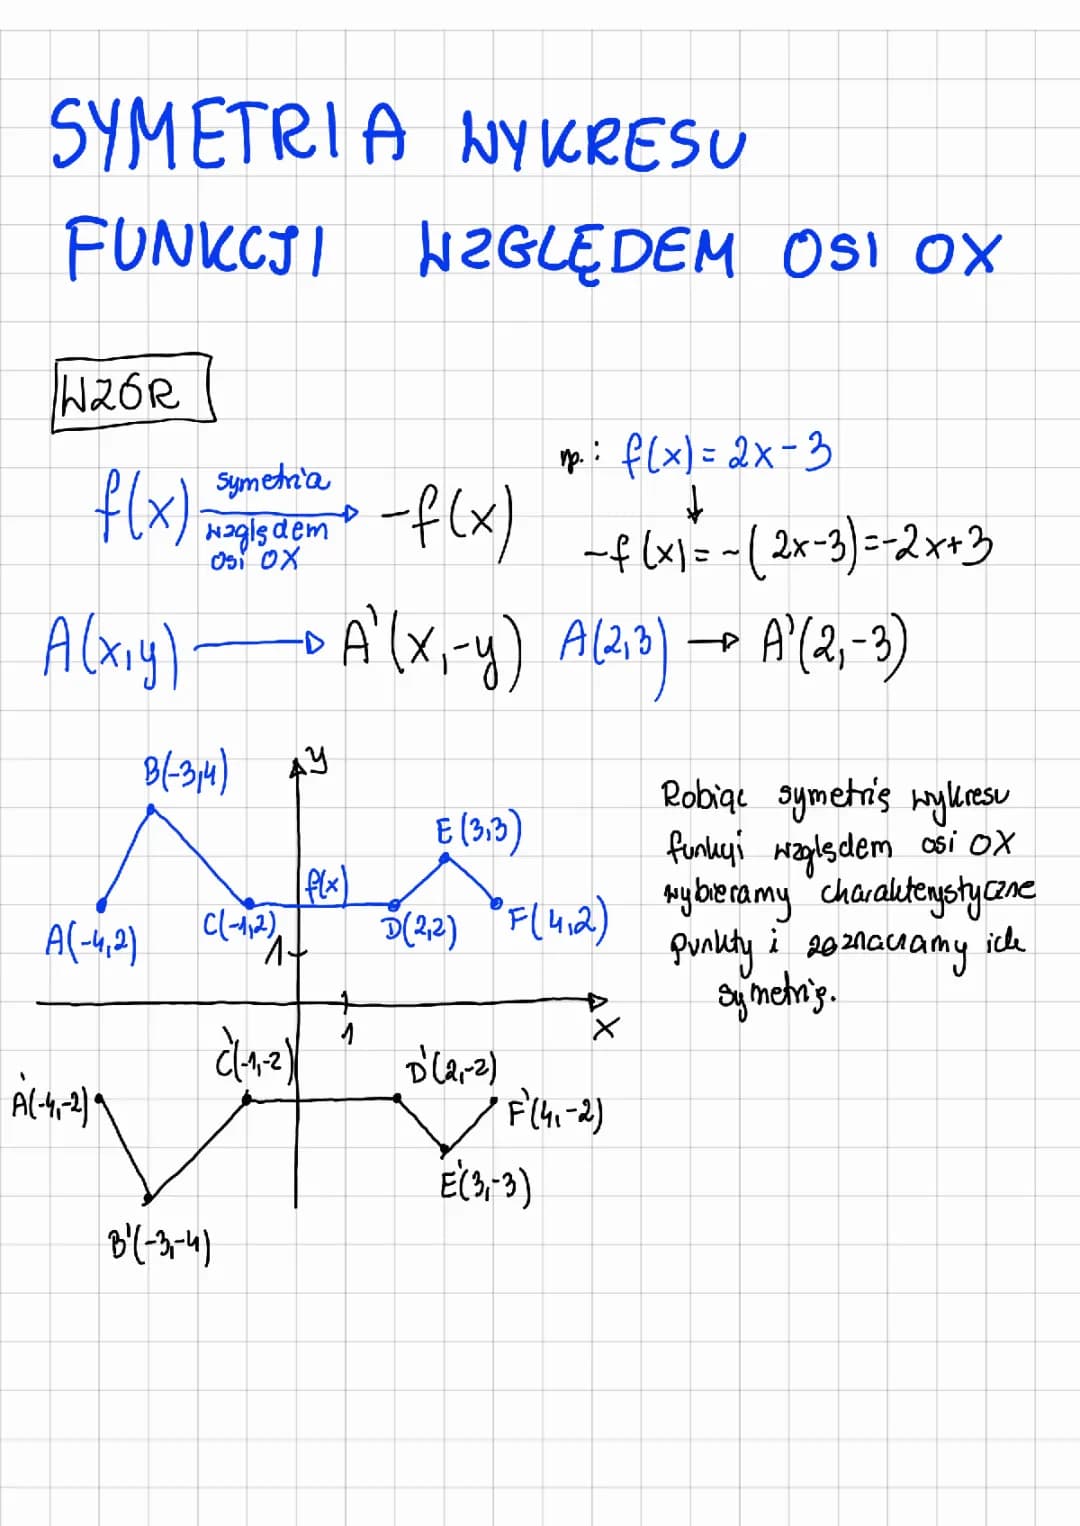 SYMETRIA WYKRESU
FUNKCJI WZGLĘDEM OSI OX
WZÓR
f(x) symetria względem osi OX -f(x)
np.: f(x) = 2x-3
-f(x) = -(2x-3) = -2x+3
A(x,y) → A'(x,-y) A(2,3) → A'(2,-3)
B(-3,4)
y
E(3,3)
f(x)
A(-4,2)
C(-1,2)
D(2,2)
F(4,2)
1
1
x
Robiąc symetrię wykresu
funkcji względem osi OX
wybieramy charakterystyczne
punkty i zaznaczamy ich
symetrię.
C'(-1,-2)
D'(2,-2)
A'(-4,-2)
F'(4,-2)
E'(3,-3)
B'(-3,-4)